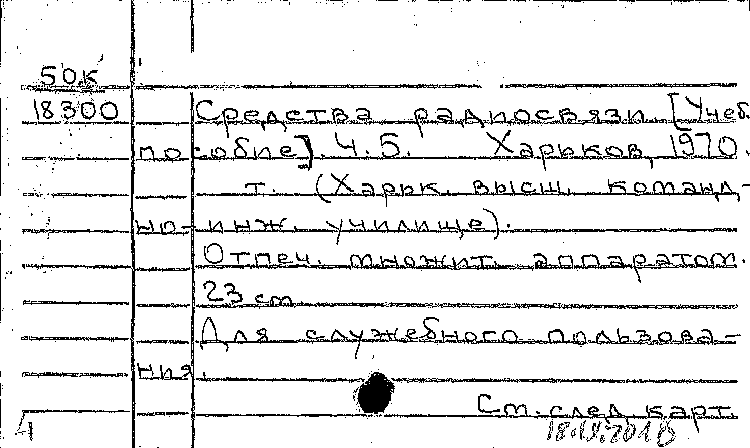 50К
18300
Средства радиосвязи. [Учеб.
пособие]. Ч. 5. Харьков, 1970.
т. (Харьк. высш. команд-
но-инж. училище).
Отпеч. множит. аппаратом.
23 см
Для служебного пользова-
ния.
См. след. карт.